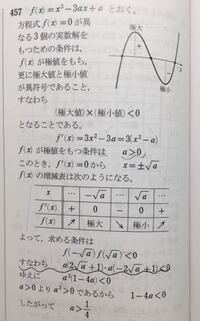 457 f(x)=x³-3ax+a とおく。
方程式 f(x)=0 が異
なる3個の実数解を
もつための条件は，
f(x) が極値をもち，
更に極大値と極小値
が異符号であること，
すなわち
極大
+
x
-
極小
(極大値)×(極小値)<0
となることである。
f'(x)=3x²-3a=3(x²-a)
f(x) が極値をもつ条件は a>0
このとき，f'(x)=0 から x=±√a
f(x) の増減表は次のようになる。
x … -√a … √a …
f'(x) + 0 - 0 +
f(x) ↗ 極大 ↘ 極小 ↗
よって，求める条件は
f(-√a)f(√a)<0
すなわち a(2√a+1)·a(-2√a+1)<0
ゆえに a²(1-4a)<0
a>0 より a²>0 であるから 1-4a<0
したがって a>1/4